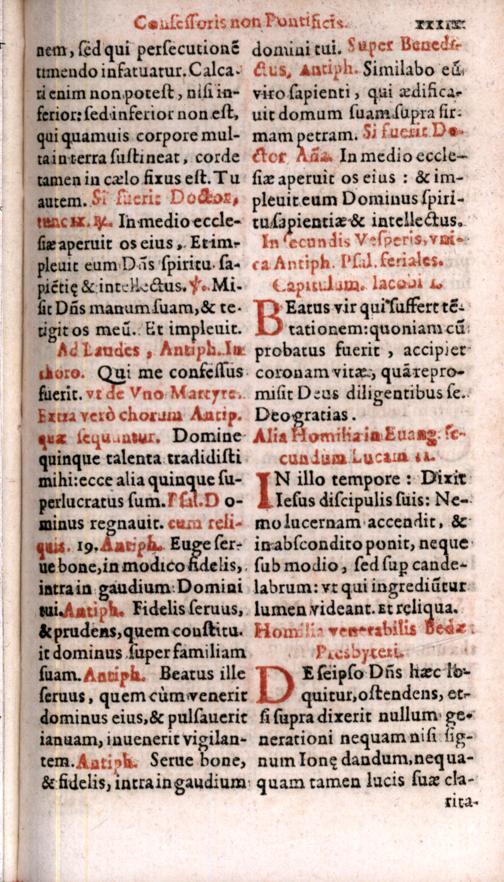 Confessoris non Pontificis.
xxxix
nem, sed qui persecutionē
timendo infatuatur. Calca-
ri enim non potest, nisi in-
ferior: sed inferior non est,
qui quamuis corpore mul-
ta in terra sustineat, corde
tamen in cælo fixus est. Tu
autem. Si fuerit Doctor,
tunc ix. ℟. In medio eccle-
siæ aperuit os eius. Et im-
pleuit eum Dñs spiritu sa-
piētię & intellectus. ℣. Mi-
sit Dñs manum suam, & te-
tigit os meū. Et impleuit.
Ad Laudes, Antiph. In
choro. Qui me confessus
fuerit. vt de Vno Martyre.
Extra verò chorum Antip.
quæ sequuntur. Domine
quinque talenta tradidisti
mihi: ecce alia quinque su-
perlucratus sum. Psal. Do-
minus regnauit. cum reli-
quis. 19. Antiph. Euge ser-
ue bone, in modico fidelis,
intra in gaudium Domini
tui. Antiph. Fidelis seruus,
& prudens, quem constitu-
it dominus super familiam
suam. Antiph. Beatus ille
seruus, quem cùm venerit
dominus eius, & pulsauerit
ianuam, inuenerit vigilan-
tem. Antiph. Serue bone,
& fidelis, intra in gaudium
domini tui. Super Benedi-
ctus, Antiph. Similabo eū
viro sapienti, qui ædifica-
uit domum suam supra fir-
mam petram. Si fuerit Do-
ctor Aña. In medio eccle-
siæ aperuit os eius: & im-
pleuit eum Dominus spiri-
tu sapientiæ & intellectus.
In secundis Vesperis, vni-
ca Antiph. Psal. feriales.
Capitulum. Iacobi 1.
BEatus vir qui suffert tē-
tationem: quoniam cū
probatus fuerit, accipiet
coronam vitæ, quā repro-
misit Deus diligentibus se.
Deo gratias.
Alia Homilia in Euang. se-
cundum Lucam 11.
IN illo tempore: Dixit
Iesus discipulis suis: Ne-
mo lucernam accendit, &
in abscondito ponit, neque
sub modio, sed sup cande-
labrum: vt qui ingrediūtur
lumen videant. Et reliqua.
Homilia venerabilis Bedæ
Presbyteri.
DE seipso Dñs hæc lo-
quitur, ostendens, et-
si supra dixerit nullum ge-
nerationi nequam nisi sig-
num Ionę dandum, nequa-
quam tamen lucis suæ cla-
rita-